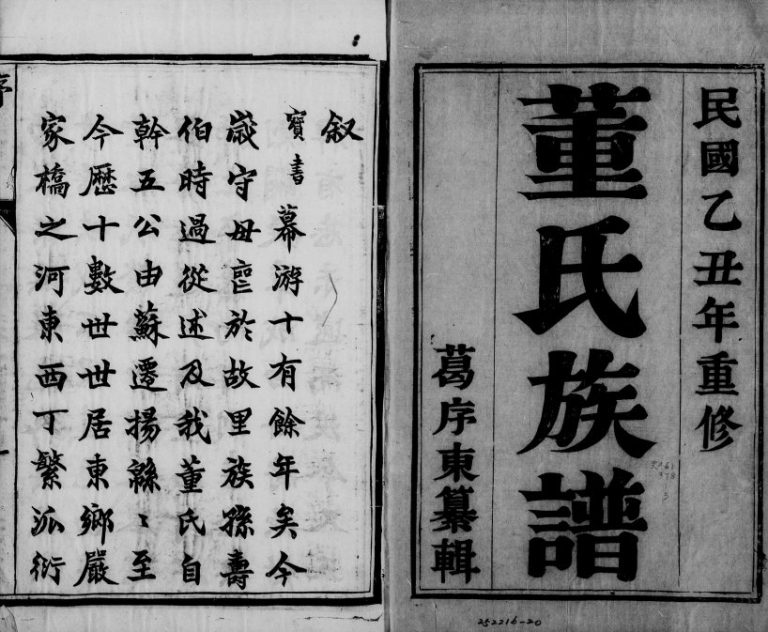 民國乙丑年重修
董氏族譜
葛序東纂輯
252216-20
叙
寶書幕游十有餘年矣今
歲守母喪於故里族孫壽
伯時過從述及我董氏自
幹五公由蘇遷揚緜〻至
今歷十數世世居東鄉嚴
家橋之河東西丁繁泒衍
序